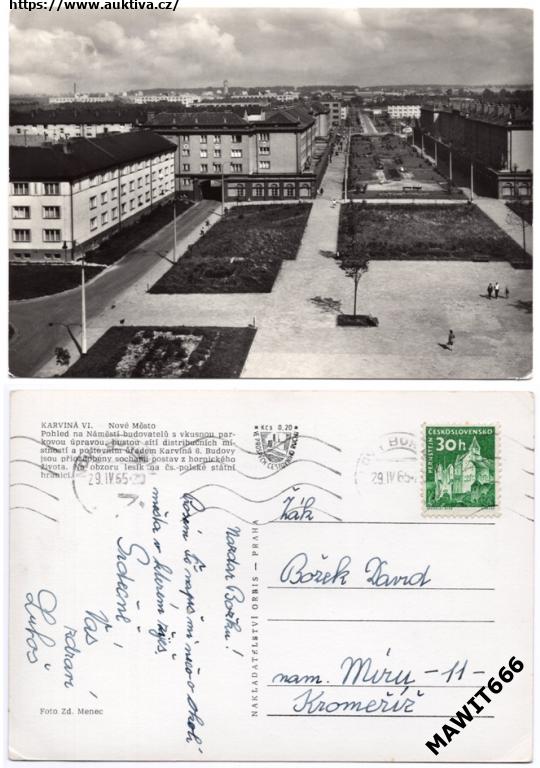 https://www.auktiva.cz/
KARVINÁ VI.    Nové Město
Pohled na Náměstí budovatelů s vkusnou par-
kovou úpravou, hustou sítí distribučních mí-
stností a poštovním úřadem Karviná 6. Budovy
jsou přizdobeny sochami postav z hornického
života. Na obzoru lesík na čs.-polské státní
hranici.
29.IV.65
Kčs 0,20
29.IV.65
ČESKOSLOVENSKO
30h
PERNŠTEJN
Nazdar Bořku!
Prosím Tě napiš mi něco o okolí
města v kterém žiješ.
Srdečně
Vás
zdraví
Luboš
NAKLADATELSTVÍ ORBIS - PRAHA
Žák
Bořek David
nam. Míru - 11 -
Kroměříž
Foto Zd. Menec
MAWIT666